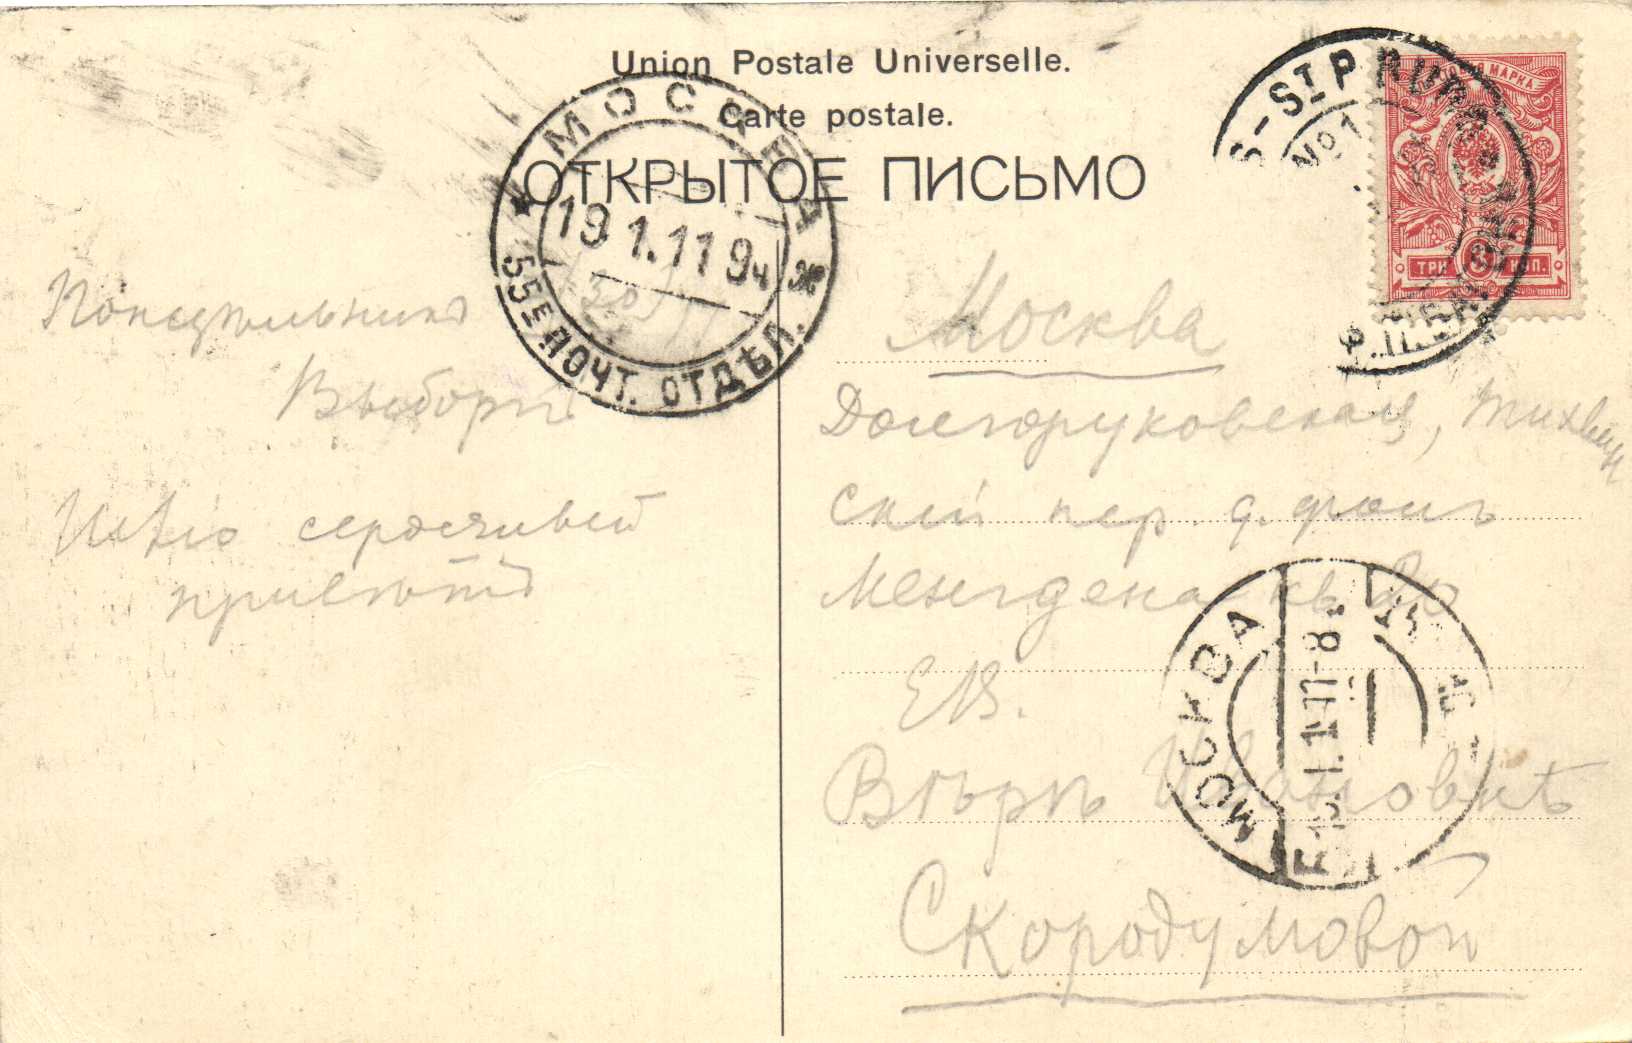 Union Postale Universelle.
Carte postale.
ОТКРЫТОЕ ПИСЬМО
МОСКВА
19.1.11 9ч
55Е ПОЧТ. ОТДѢЛ.
№1
МАРКА
ТРИ КОП.
Понедѣльникъ
Выборгъ
Шлю сердечный
привѣтъ
Москва
Долгоруковская, Тихвин
скій пер. д. фонъ
Менгдена кв. 20
Е.В.
Вѣрѣ Ивановнѣ
Скородумовой
МОСКВА